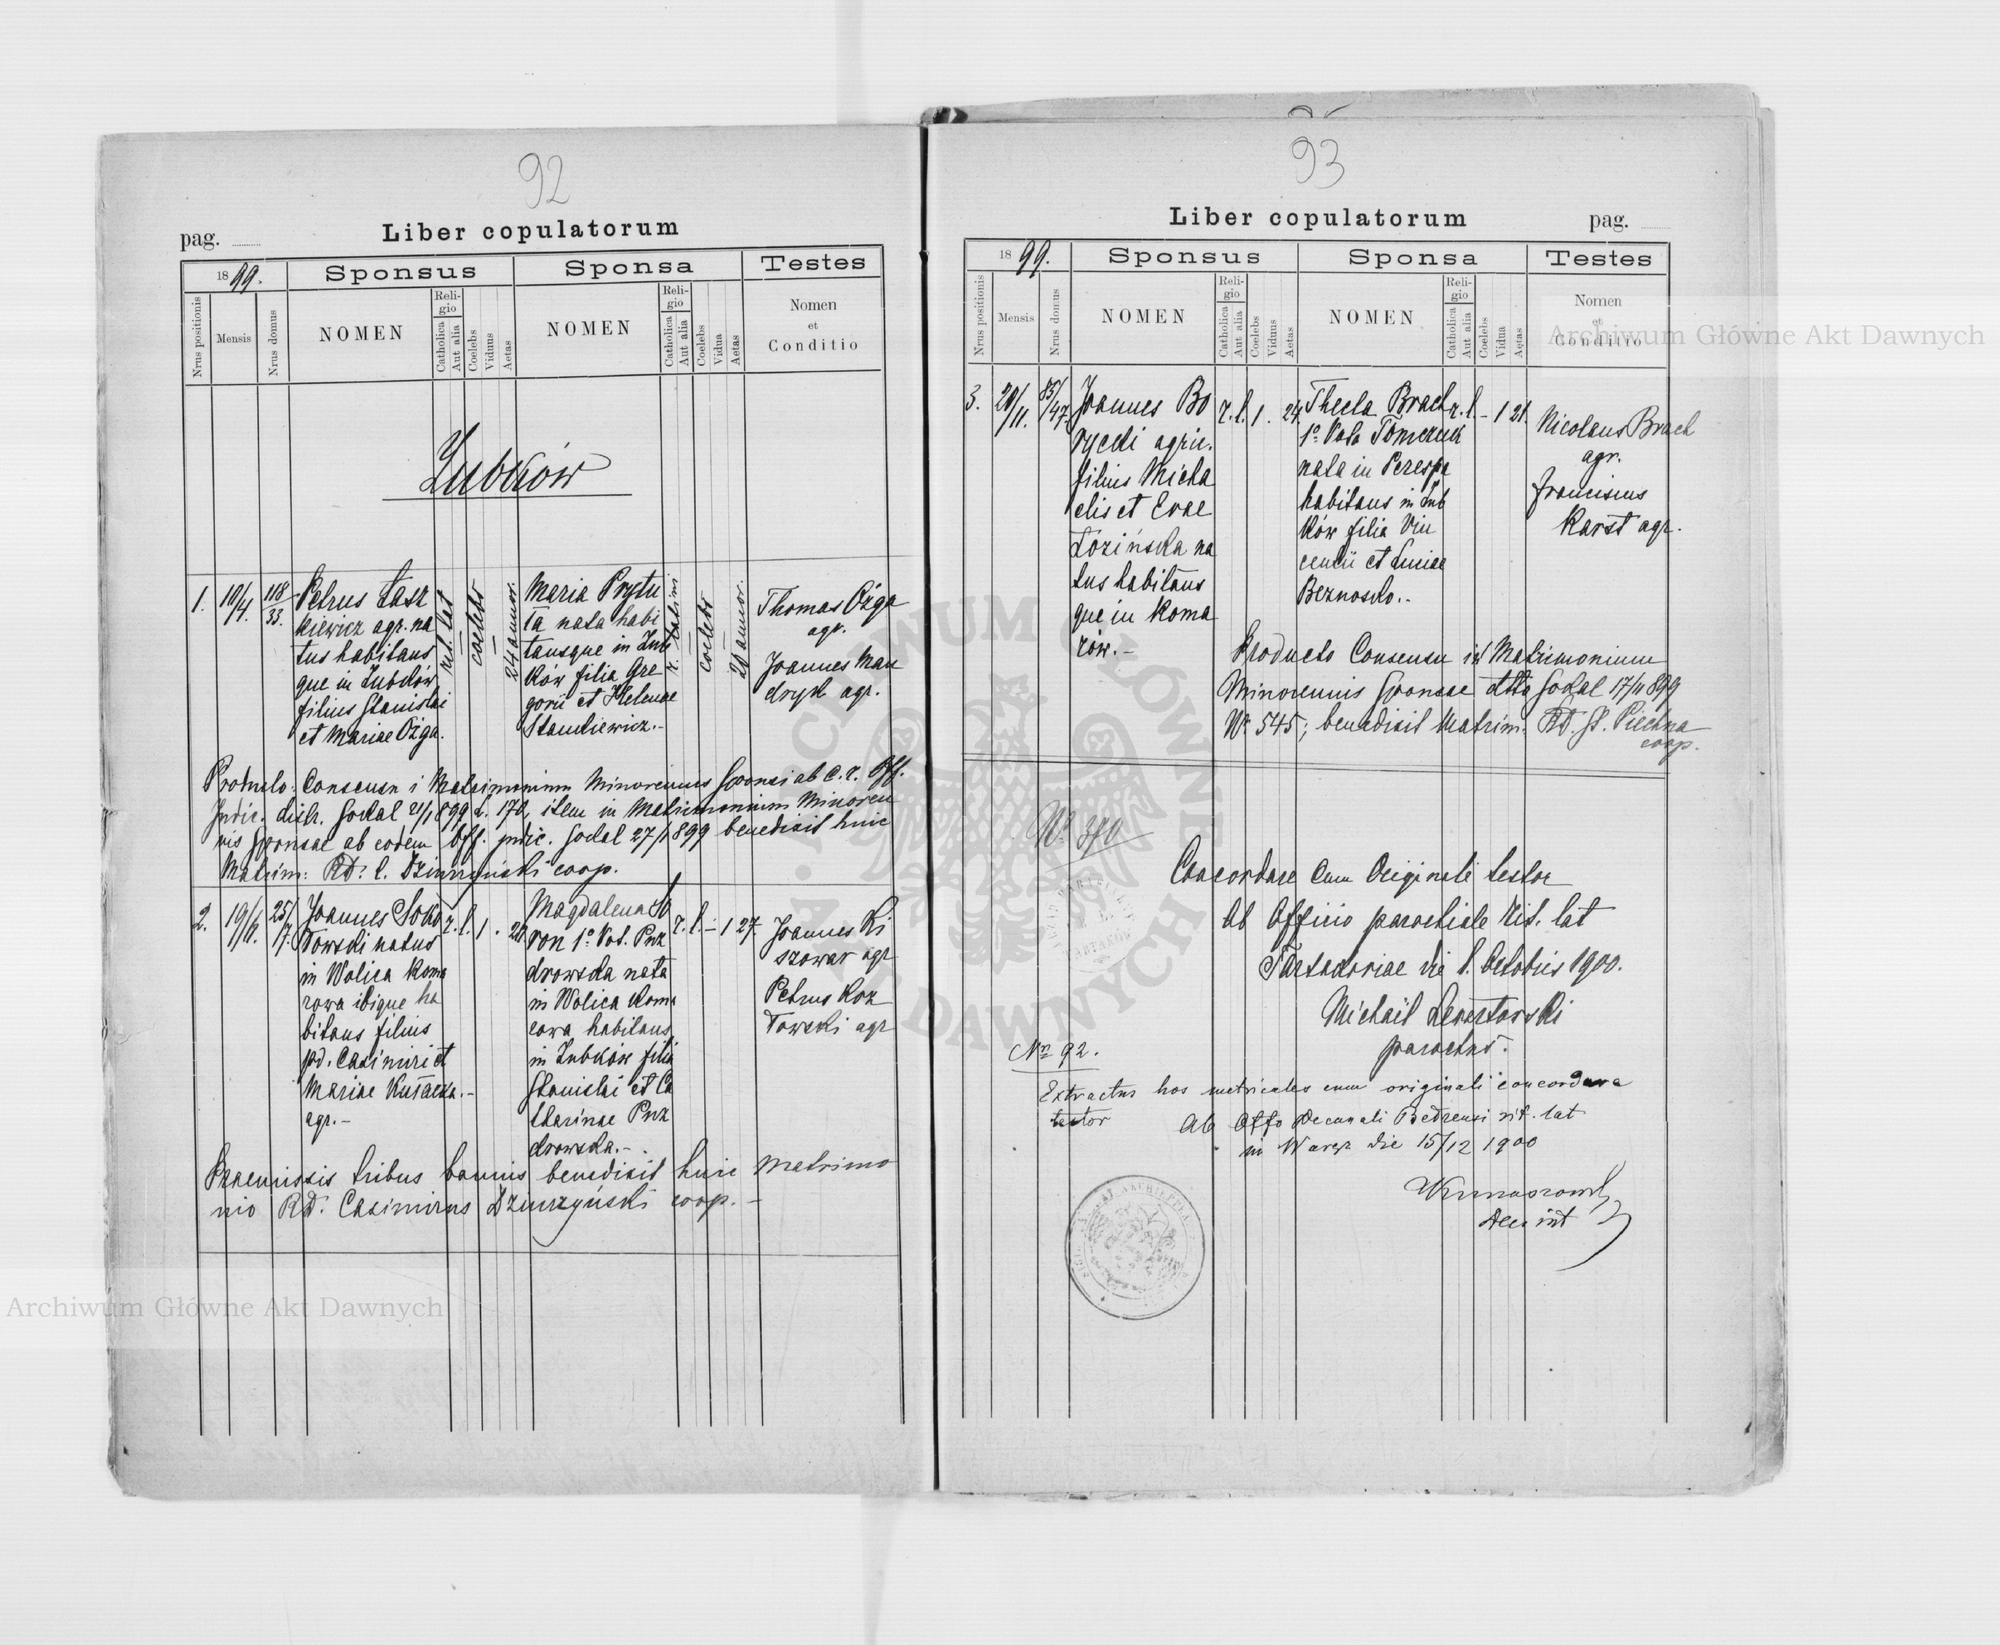 92
pag.
Liber copulatorum
1899.
Sponsus
Sponsa
Testes
Nrus positionis
Mensis
Nrus domus
NOMEN
Religio
Catholica
Aut alia
Coelebs
Viduus
Aetas
NOMEN
Religio
Catholica
Aut alia
Coelebs
Vidua
Aetas
Nomen
et
Conditio
Łubków
1.
10/4.
118/33.
Petrus Łasz
kiewicz agr. na
tus habitans
que in Łubków
filius Stanislai
et Mariae Ożga.
rit. lat
coelebs
24 annor.
Maria Prytu
ła nata habi
tansque in Łub
ków filia Gre
gorii et Helenae
Stankiewicz.-
r. latini
coelebs
20 annor.
Thomas Ożga
agr.
Joannes Man
dryk agr.
Producto: Consensu i Matrimonium Minorennis Sponsi ab C. r. Off.
Judic. distr. Sokal 21/1 899 L. 170, item in Matrimonium Minoren
nis Sponsae ab eodem Off. judic. Sokal 27/1 899 benedixit huic
Matrim: RD. C. Dziurzyński coop.
2.
19/6.
25/17.
Joannes Soko
łowski natus
in Wolica Koma
rowa ibique ha
bitans filius
pd. Casimiri et
Mariae Kułaczka.-
agr.-
r. l.
1
Magdalena So
ron 1º Vot. Prz
drowska nata
in Wolica Koma
rowa habitans
in Łubków filia
Stanislai et Ca
tharinae Prz
drowska.-
r. l. - 1 27.
Joannes Ki
szowar agr
Petrus Koz
łowski agr
Praemissis tribus bannis benedixit huic Matrimo
nio RD. Casimirus Dziurzyński coop. -
93
Liber copulatorum
pag.
1899.
Sponsus
Sponsa
Testes
Nrus positionis
Mensis
Nrus domus
NOMEN
Religio
Catholica
Aut alia
Coelebs
Viduus
Aetas
NOMEN
Religio
Catholica
Aut alia
Coelebs
Vidua
Aetas
Nomen
et
Conditio
3.
20/11.
85/47.
Joannes Bo
rycki agric.
filius Micha
elis et Evae
Łozińska na
tus habitans
que in Koma
rów.-
r. l. 1. 24.
Thecla Brach
1º Voto Tomczuk
nata in Perespa
habitans in Łub
ków filia Vin
centii et Luciae
Beznosko..
r. l. - 1 21.
Nicolaus Brach
agr.
Franciscus
Karst agr.
Producto Consensu in Matrimonium
Minorennis Sponsae ddto Sokal 17/11 899
Nº 545; benedixit Matrim. RD. St. Piechna
coop.
Nº 370
Concordare cum Originali testor
Ab Officio parochiale rit. lat
Tartakoviae die 1. Octobris 1900.
Michaił
parochus.
Nro 92.
Extractus hos metricales cum originali concordare
testor
Ab Offo Decanali Bełzensi rit. lat
in Waręż die 15/12 1900
Dec. int
Archiwum Główne Akt Dawnych
Archiwum Główne Akt Dawnych
ARCHIWUM GŁÓWNE AKT DAWNYCH